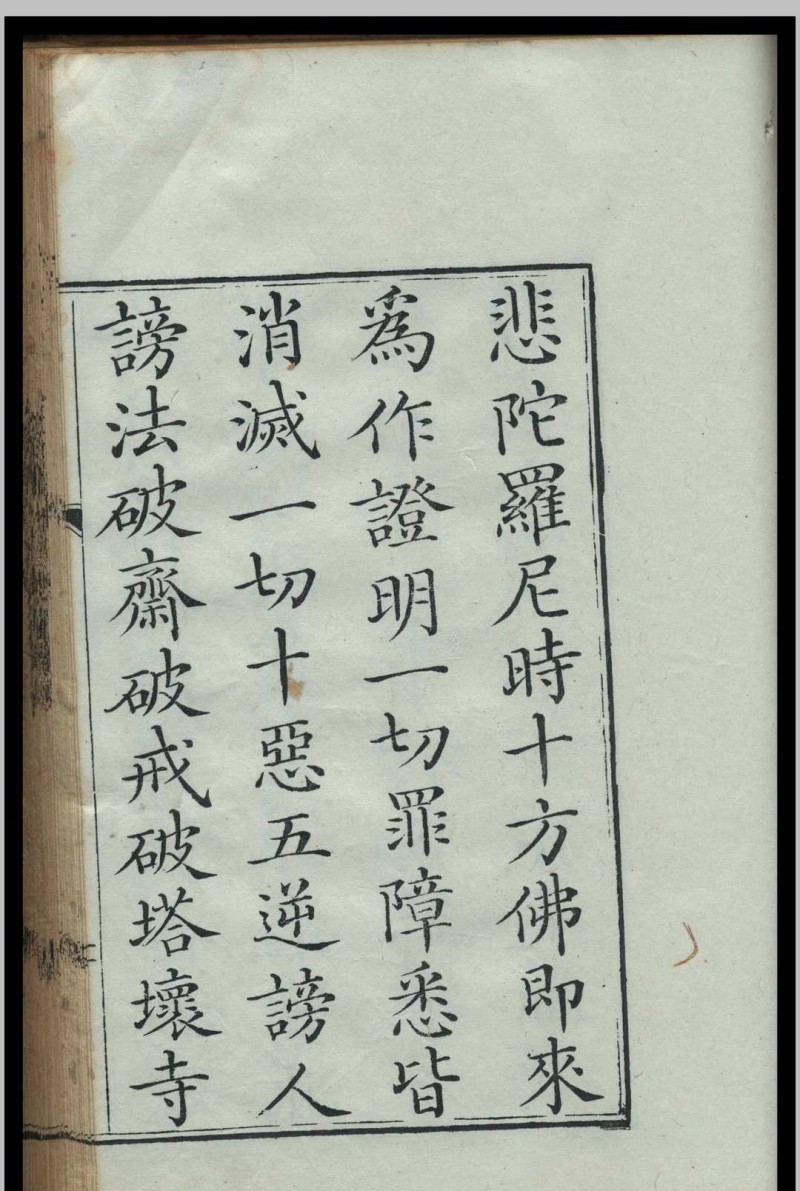 悲陀羅尼時十方佛即來
為作證明一切罪障悉皆
消滅一切十惡五逆謗人
謗法破齋破戒破塔壞寺